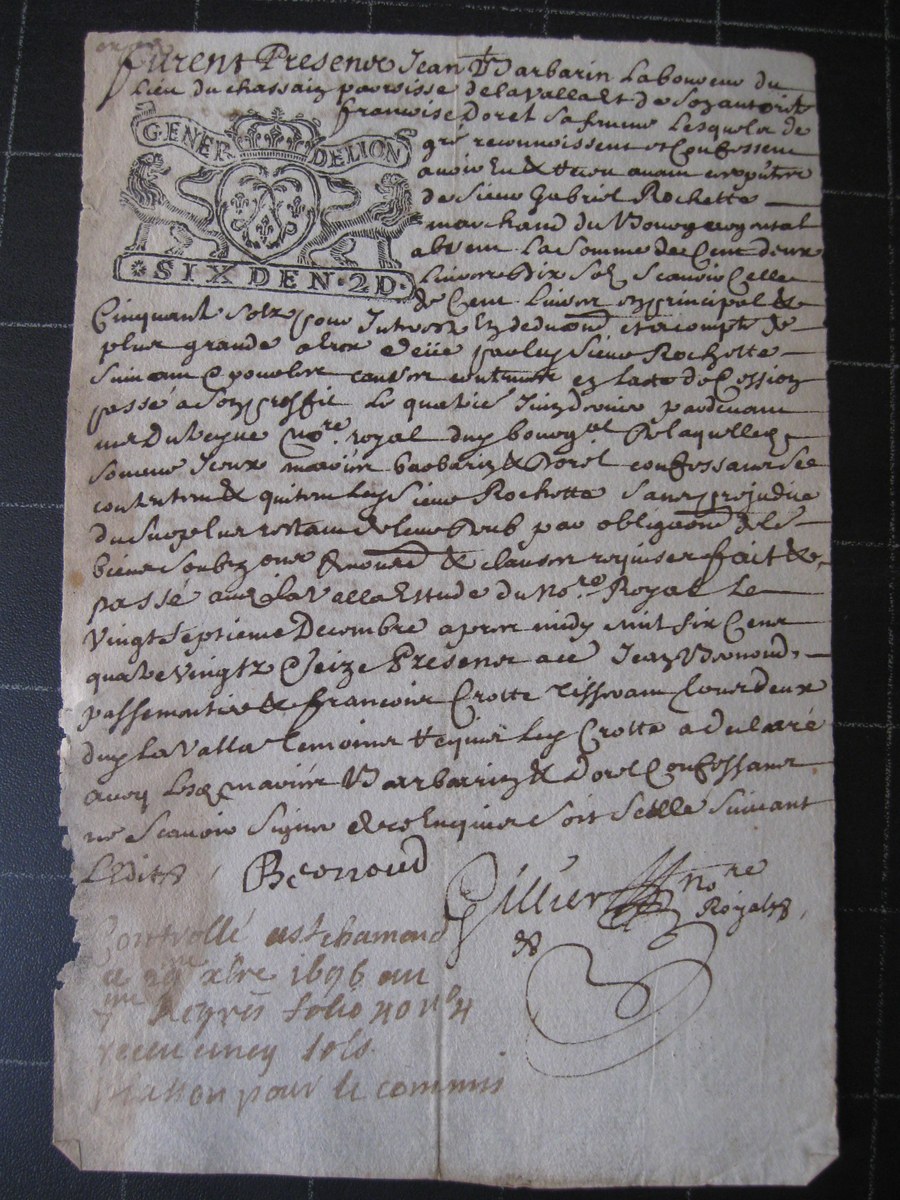 furent Presens Jean Barbarin Laboureur du
Lieu du chassain parroisse de laValla Et de Son autorité
francoise Dorel Sa femme Lesquels de
GENER DELION
gré reconnoissent et Confessent
avoir Eu & Receu avant
de Sieur Gabriel Rochette
marchand du Bourg argental
absent La Somme de Cent deux
SIX DEN · 2D ·
Livres Dix Solz Scavoir Celle
de Cent Livres en principal &
Cinquante Solz pour Interest En deduction et a compte de
plus grande a eux deüe par led Sieur Rochette
Suivant & pour les causes contenues en lacte de Cession
passé a Son proffit Le quatrie Juin dernier pardevant
me no.re royal dud bourg al De laquelle
Somme Iceux mariés barbarin & Dorel confessans Se
contentent & quitent led Sieur Rochette Sans prejudice
du Surplus restant de leur Deub par obligaon de
biens Soubz & clauses requises fait &
passé aud LaValla Ettude du No.re Royal Le
Vingt Septieme Decembre apres midy mil Six Cens
quatre Vingtz Seize Presens a ce Jean Beroud
passementier & francois Crotte tisserant tous deux
dud La Valla temoins Requis led Crotte a declaré
avec Lesd mariés Barbarin & Dorel Confessans
ne Scavoir Signer de ce Enquis Soit Scellé Suivant
LEdit
Beroud
Gillier no.re
Royal
Controllé a st chamond
le 29me xbre 1696 au
7me Regre folio 40 no 4
receu cinq sols
pour le commis